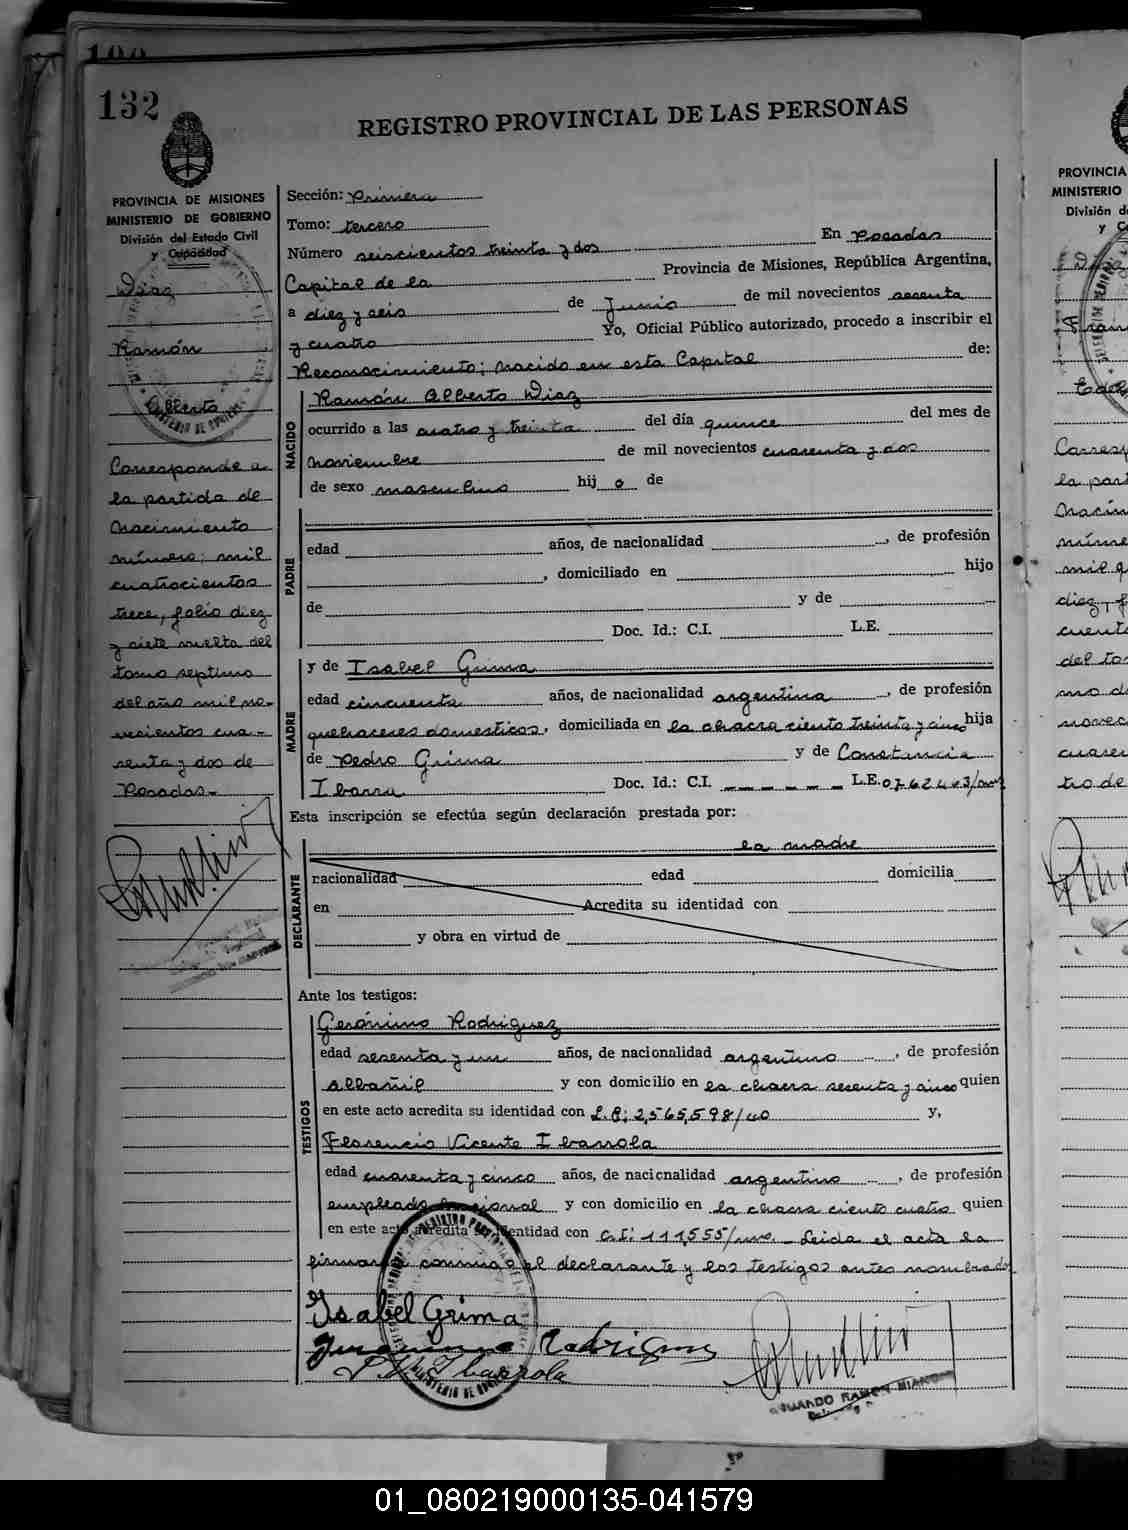 132
REGISTRO PROVINCIAL DE LAS PERSONAS
PROVINCIA DE MISIONES
MINISTERIO DE GOBIERNO
División del Estado Civil
y Capacidad
Diaz
Ramón
Alberto
Corresponde a
la partida de
nacimiento
número; mil
cuatrocientos
trece, folio diez
y siete vuelta del
tomo septimo
del año mil no-
vecientos cua-
renta y dos de
Posadas.-
Sección: Primera
Tomo: tercero
Número seiscientos treinta y dos En Posadas
Capital de la Provincia de Misiones, República Argentina,
a diez y seis de Junio de mil novecientos sesenta
y cuatro Yo, Oficial Público autorizado, procedo a inscribir el
Reconocimiento; nacido en esta Capital de:
NACIDO
Ramón Alberto Diaz
ocurrido a las cuatro y treinta del día quince del mes de
noviembre de mil novecientos cuarenta y dos
de sexo masculino hij o de
PADRE
edad años, de nacionalidad , de profesión
, domiciliado en hijo
de y de
Doc. Id.: C.I. L.E.
MADRE
y de Isabel Grima
edad cincuenta años, de nacionalidad argentina , de profesión
quehaceres domesticos, domiciliada en la chacra ciento treinta y cinco hija
de Pedro Grima y de Constancia
Ibarra Doc. Id.: C.I. L.E.
Esta inscripción se efectúa según declaración prestada por:
la madre
DECLARANTE
nacionalidad edad domicilia
en Acredita su identidad con
y obra en virtud de
Ante los testigos:
TESTIGOS
Gerónimo Rodriguez
edad sesenta y un años, de nacionalidad argentino , de profesión
albañil y con domicilio en la chacra sesenta y cinco quien
en este acto acredita su identidad con 2,565,598/ y,
Florencio Vicente Ibarrola
edad cuarenta y cinco años, de nacionalidad argentino , de profesión
empleado nacional y con domicilio en la chacra ciento cuatro quien
en este acto acredita su identidad con C.I: 111,555/ Leida el acta la
firman conmigo el declarante y los testigos antes nombrados
Isabel Grima
Rodrigues
Ibarrola
EDUARDO RAMON
PROVINCIA
MINISTERIO
División d
01_080219000135-041579